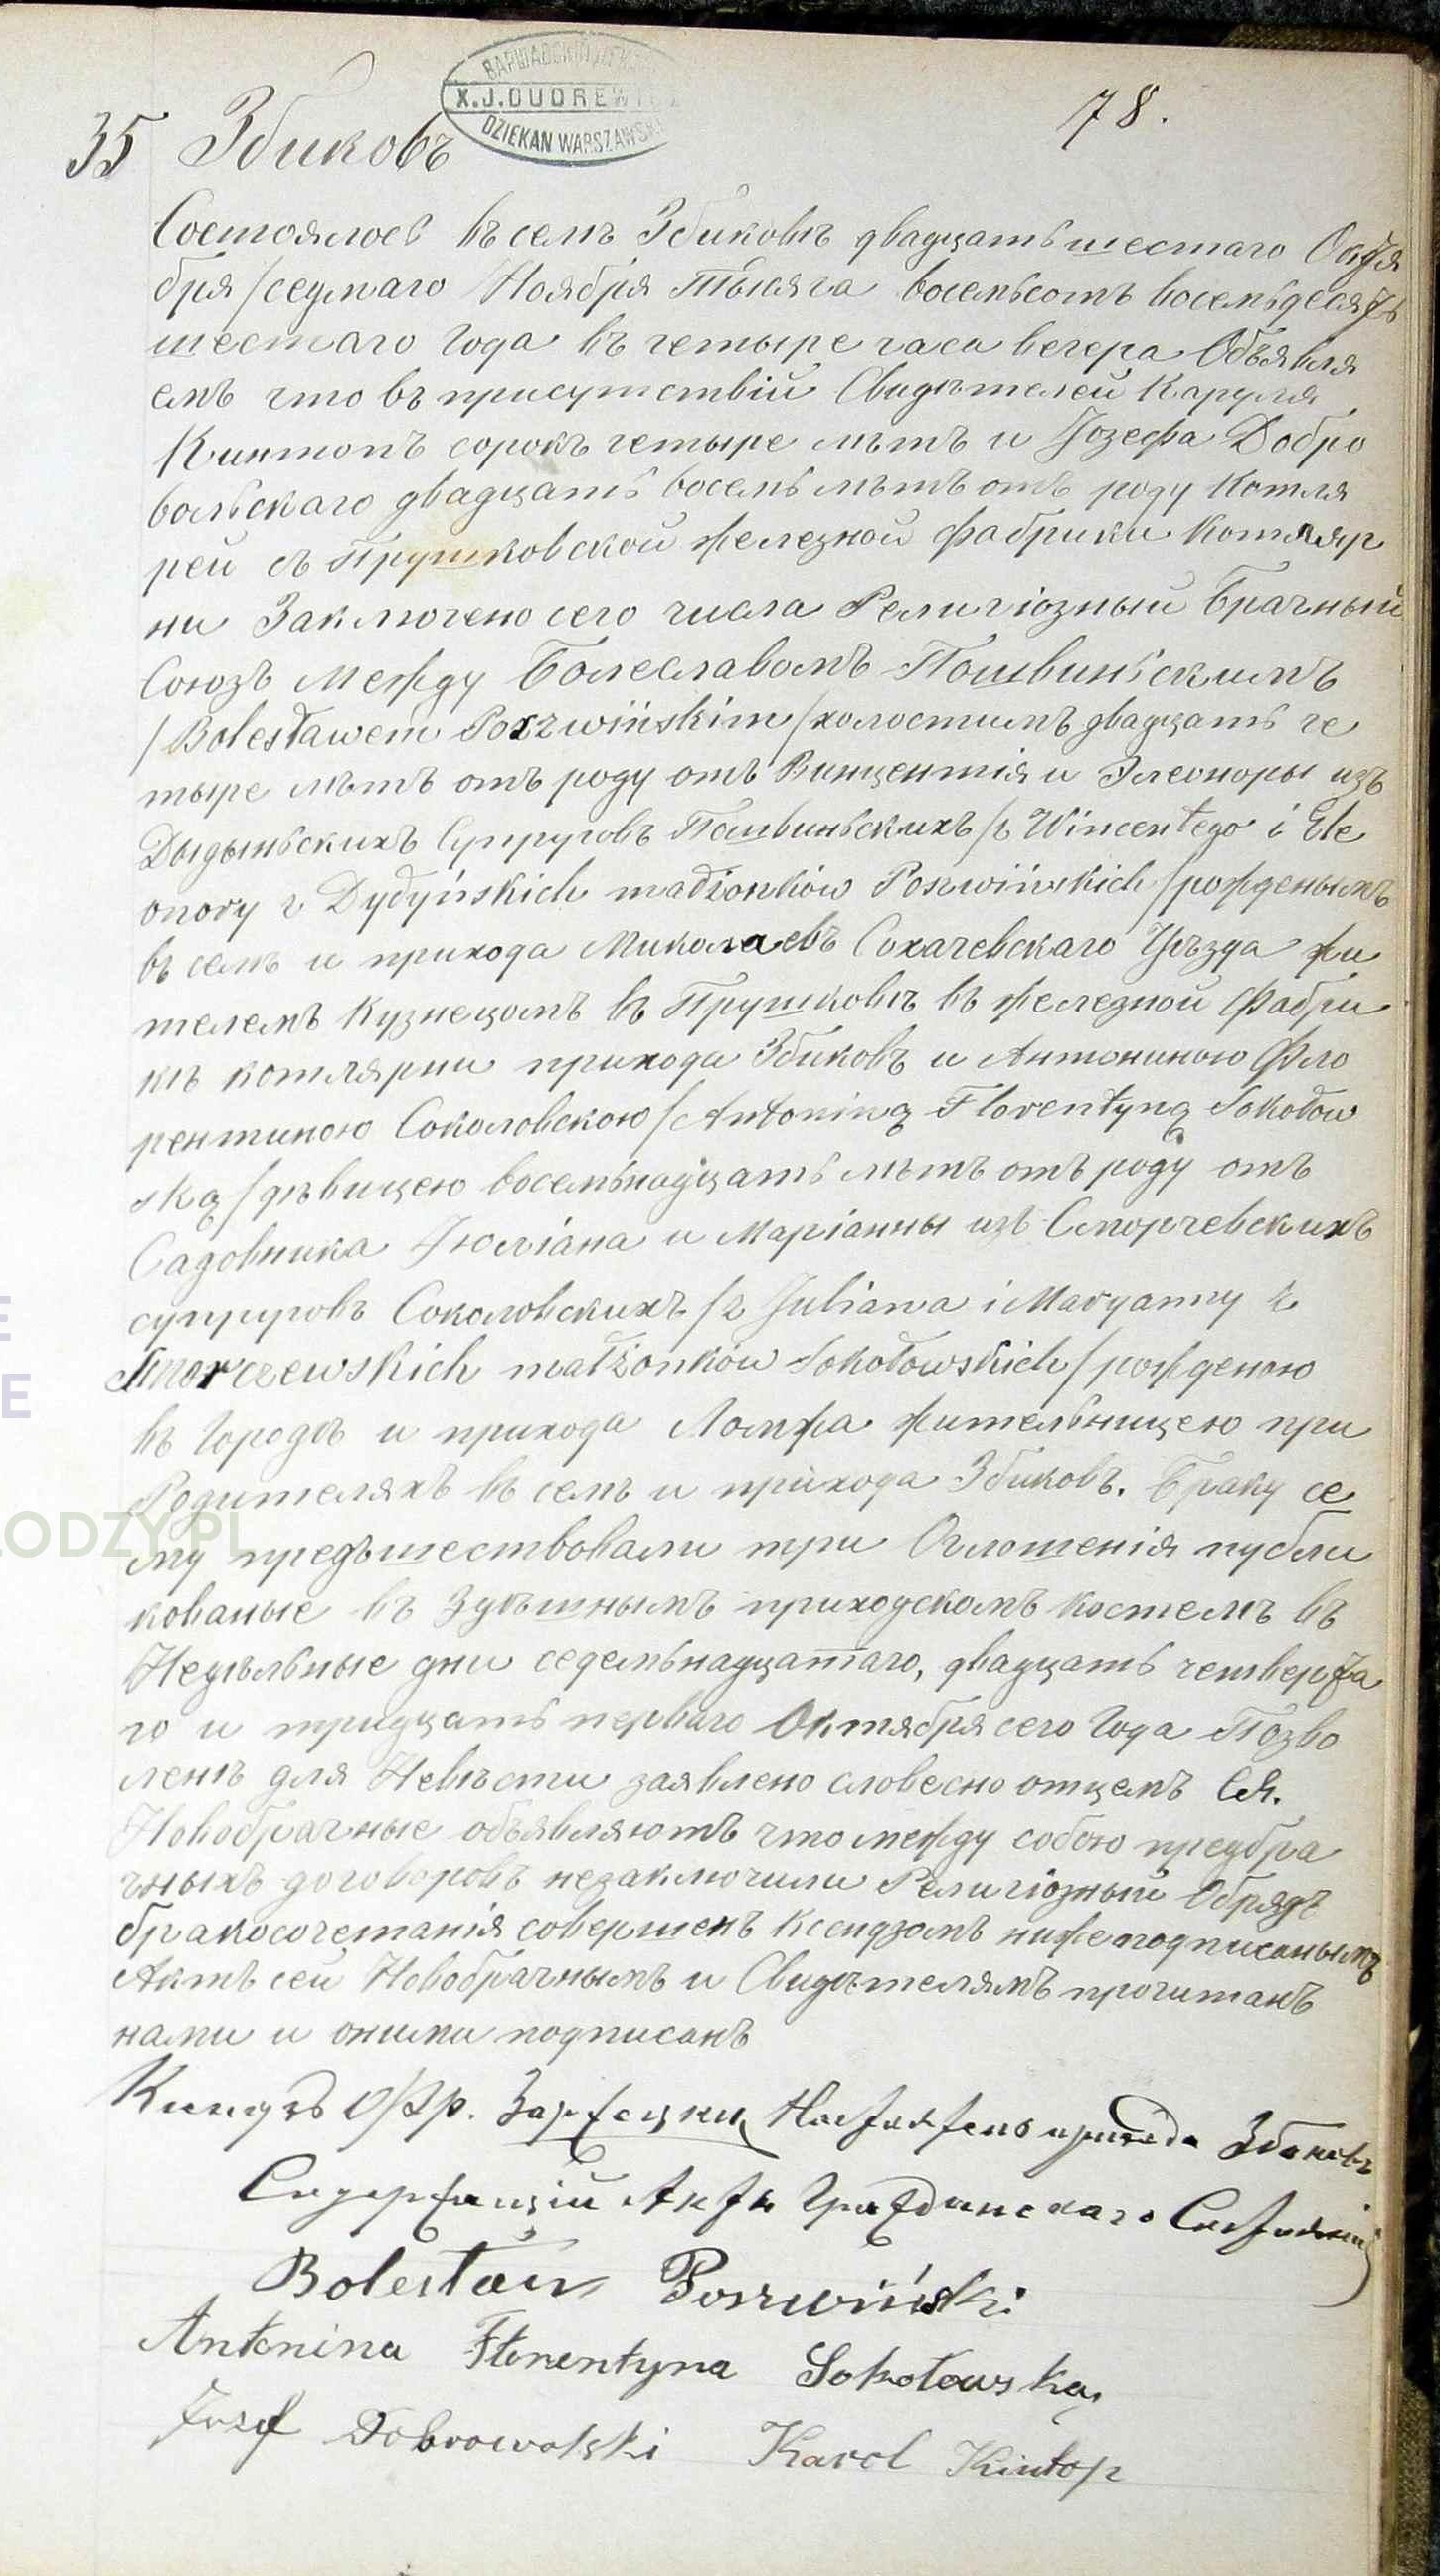 ВАРШАВСКІЙ
X.J.DUDREWI
DZIEKAN WARSZAWSK
78.
35 Збиковъ
Состоялось въ семъ Збиковѣ двадцать шестаго Октя
бря /седмаго Ноября тысяча восемьсотъ восемьдесятъ
шестаго года въ четыре часа вечера Объявля
емъ что въ присутствій Свидѣтелей Кароля
Кинтопъ сорокъ четыре лѣтъ и Іозефа Добро
вольскаго двадцать восемь лѣтъ отъ роду котля
рей съ Прушковской железной фабрики котляр
ни Заключено сего числа Религіозный Брачный
Союзъ между Болеславомъ Пошвиньскимъ
/Bolesławem Poszwińskim/ холостымъ двадцать че
тыре лѣтъ отъ роду отъ Винцентія и Элеоноры изъ
Дыдыньскихъ Супруговъ Пошвиньскихъ /z Wincentego i Ele
onory z Dydyńskich małżonków Poszwińskich/ рожденымъ
въ селѣ и прихода Миколаевъ Сохачевскаго Уѣзда жи
телемъ кузнецомъ въ Прушковѣ въ железной Фабри
кѣ котлярни прихода Збиковъ и Антониною Фло
рентиною Соколовскою /Antoniną Florentyną Sokołow
ską/ дѣвицею восемьнадцать лѣтъ отъ роду отъ
Садовника Юліана и Маріанны изъ Сморчевскихъ
супруговъ Соколовскихъ /z Juliana i Maryanny z
Smorczewskich małżonków Sokołowskich/ рожденою
въ Городѣ и прихода Ломжа жительницею при
Родителяхъ въ селѣ и прихода Збиковъ. Браку се
му предъшествовали три Оглошенія публи
кованые въ Здѣшнымъ приходскомъ костелѣ въ
Недѣльные дни седемьнадцатаго, двадцать четверта
го и тридцать перваго Октября сего Года Позво
ленѣ для Невѣсти заявлено словесно отцемъ Ея.
Новобрачные объявляютъ что между собою предбра
чныхъ договоровъ незаключили Религіозный Обрядъ
бракосочетанія совершенъ Ксендзомъ нижеподписанымъ
Актъ сей Новобрачнымъ и Свидѣтелямъ прочитанъ
нами и оными подписанъ
Ксендзъ Настоятель прихода Збиковъ
Содержащій Акты Гражданскаго Состоянія
Bolesław Poszwiński
Antonina Florentyna Sokołowska
Józef Dobrowolski Karol Kintop
E
E
LODZY.PL